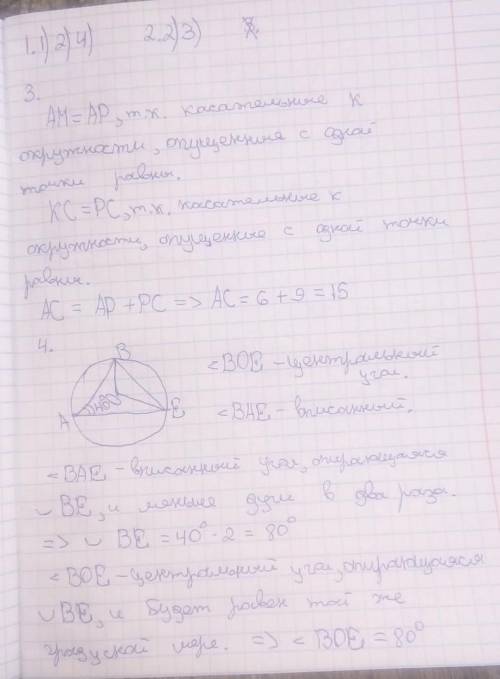 1.1) 2) 4) 2.2) 3)
3.
AM = AP, т.к. касательные к
окружности, опущенные с одной
точки равны.
KC = PC, т.к. касательные к
окружности, опущенные с одной точки
равны.
AC = AP + PC => AC = 6 + 9 = 15
4.
B
A
E
40°
<BOE - центральный
угол.
<BAE - вписанный.
<BAE - вписанный угол, опирающаяся
◡ BE, и меньше дуги в два раза.
=> ◡ BE = 40° · 2 = 80°
<BOE - центральный угол, опирающаяся
◡ BE, и будет равен той же
градусной мере. => < BOE = 80°